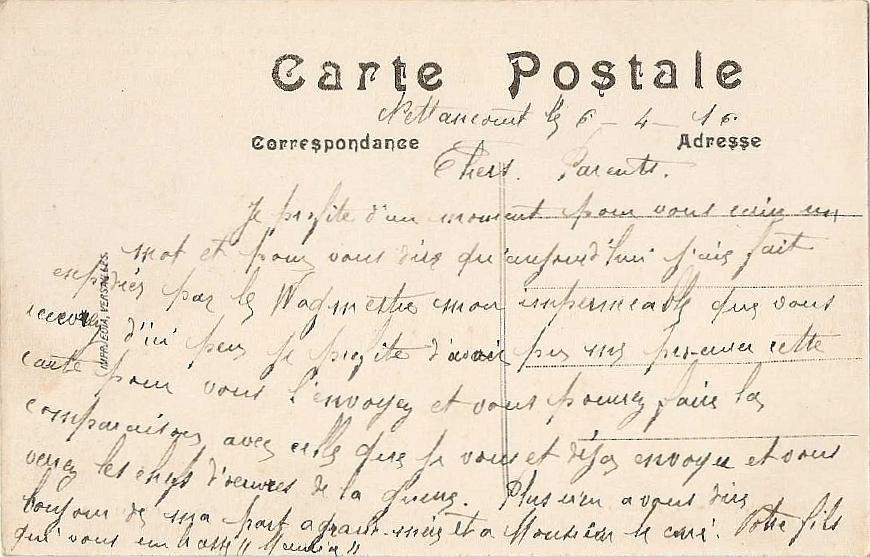 Carte Postale
Nettancourt le 6 - 4 - 16
Correspondance
Adresse
Chers Parents.
Je profite d'un moment pour vous ecrire un
mot et pour vous dire qu'aujourd'hui j'ais fait
expédier par le Wagmestre mon impermeable que vous
recevrez d'ici peu je profite d'avoir pu me procurer cette
carte pour vous l'envoyez et vous pourrez faire la
comparaison avec celle que je vous et déja envoyee et vous
verrez les chefs d'oeuvres de la guerre. Plus rien a vous dire
bonjour de ma part a grand-mère et a Monsieur le curé. Votre fils
qui vous embrasse
IMP. VERSAILLES.